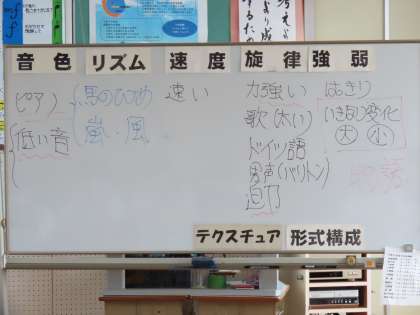 音色
リズム
速度
旋律
強弱
ピアノ
低い音
馬のひづめ
嵐・風
速い
力強い
歌(太い)
ドイツ語
男声(バリトン)
迫力
はっきり
いきなり変化
大 小
物語
テクスチュア
形式構成